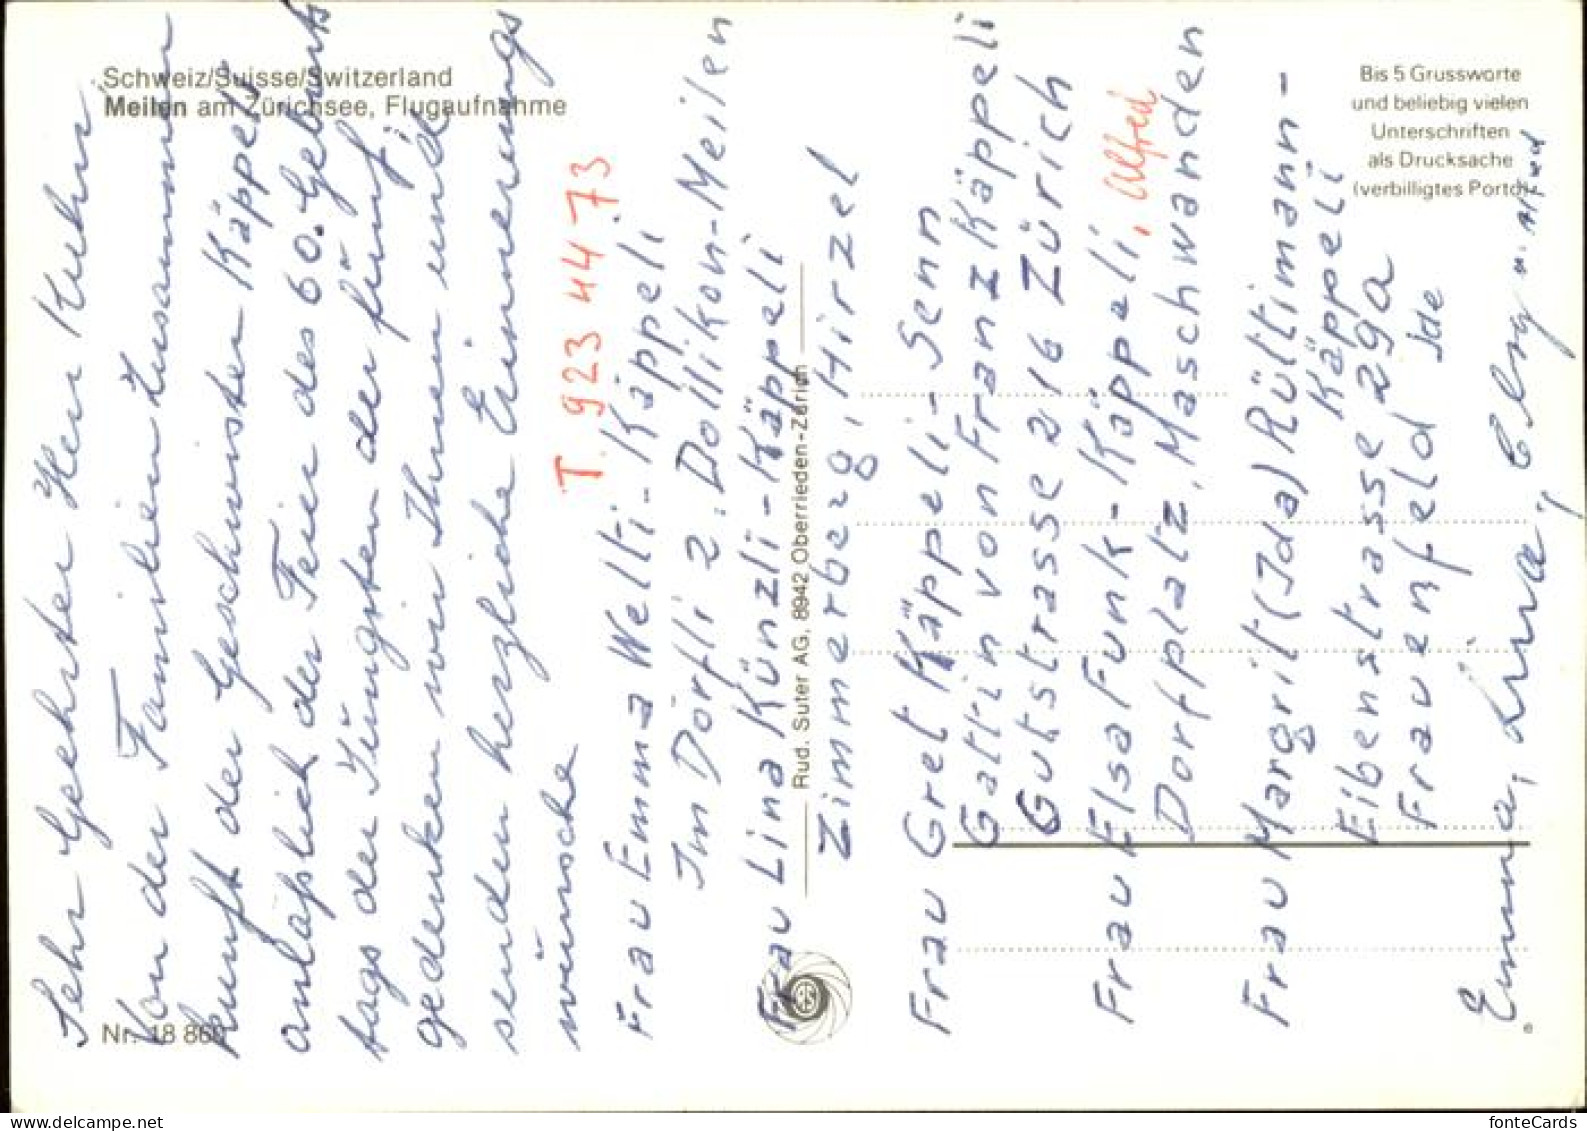 Schweiz/Suisse/Switzerland
Meilen am Zürichsee, Flugaufnahme
Bis 5 Grussworte
und beliebig vielen
Unterschriften
als Drucksache
(verbilligtes Porto)
Sehr Geehrter Herr Kuhn
Von der Familien Zusammen
kunft der Geschwister Käppeli
anläßlich der Feier des 60. Geburts
tags der Jüngsten der fünf,
gedenken wir Ihnen und
senden herzliche Erinnerungs
wünsche
T. 923 44 73
Frau Emma Welti-Käppeli
Im Dörfli 2, Dollikon-Meilen
Frau Lina Künzli-Käppeli
Zimmerberg, Hirzel
Frau Gret Käppeli-Senn
Gattin von Franz Käppeli
Gutstrasse 216 Zürich
Frau Elsa Funk-Käppeli, Alfred
Dorfplatz, Maschwanden
Frau Margrit (Ida) Rültimann-
Käppeli
Eibenstrasse 29a
Frauenfeld Ida
Emma, Lina, Elsy u. Alfred
Rud. Suter AG, 8942 Oberrieden-Zürich
RS
Nr. 18 860
6
fonteCards